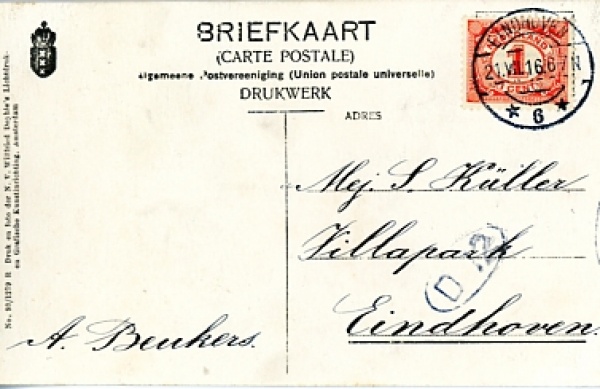 BRIEFKAART
(CARTE POSTALE)
Algemeene Postvereeniging (Union postale universelle)
DRUKWERK
ADRES
EINDHOVEN
21.VI.16.6-7N
* 6 *
NEDERLAND
1
CENT
Mej. S. Küller
Villapark
Eindhoven.
D 2
A. Beukers.
No. 98/1279 R Druk en foto der N. V. Wilfried Deyhle's Lichtdruk-
en Grafische Kunstinrichting, Amsterdam